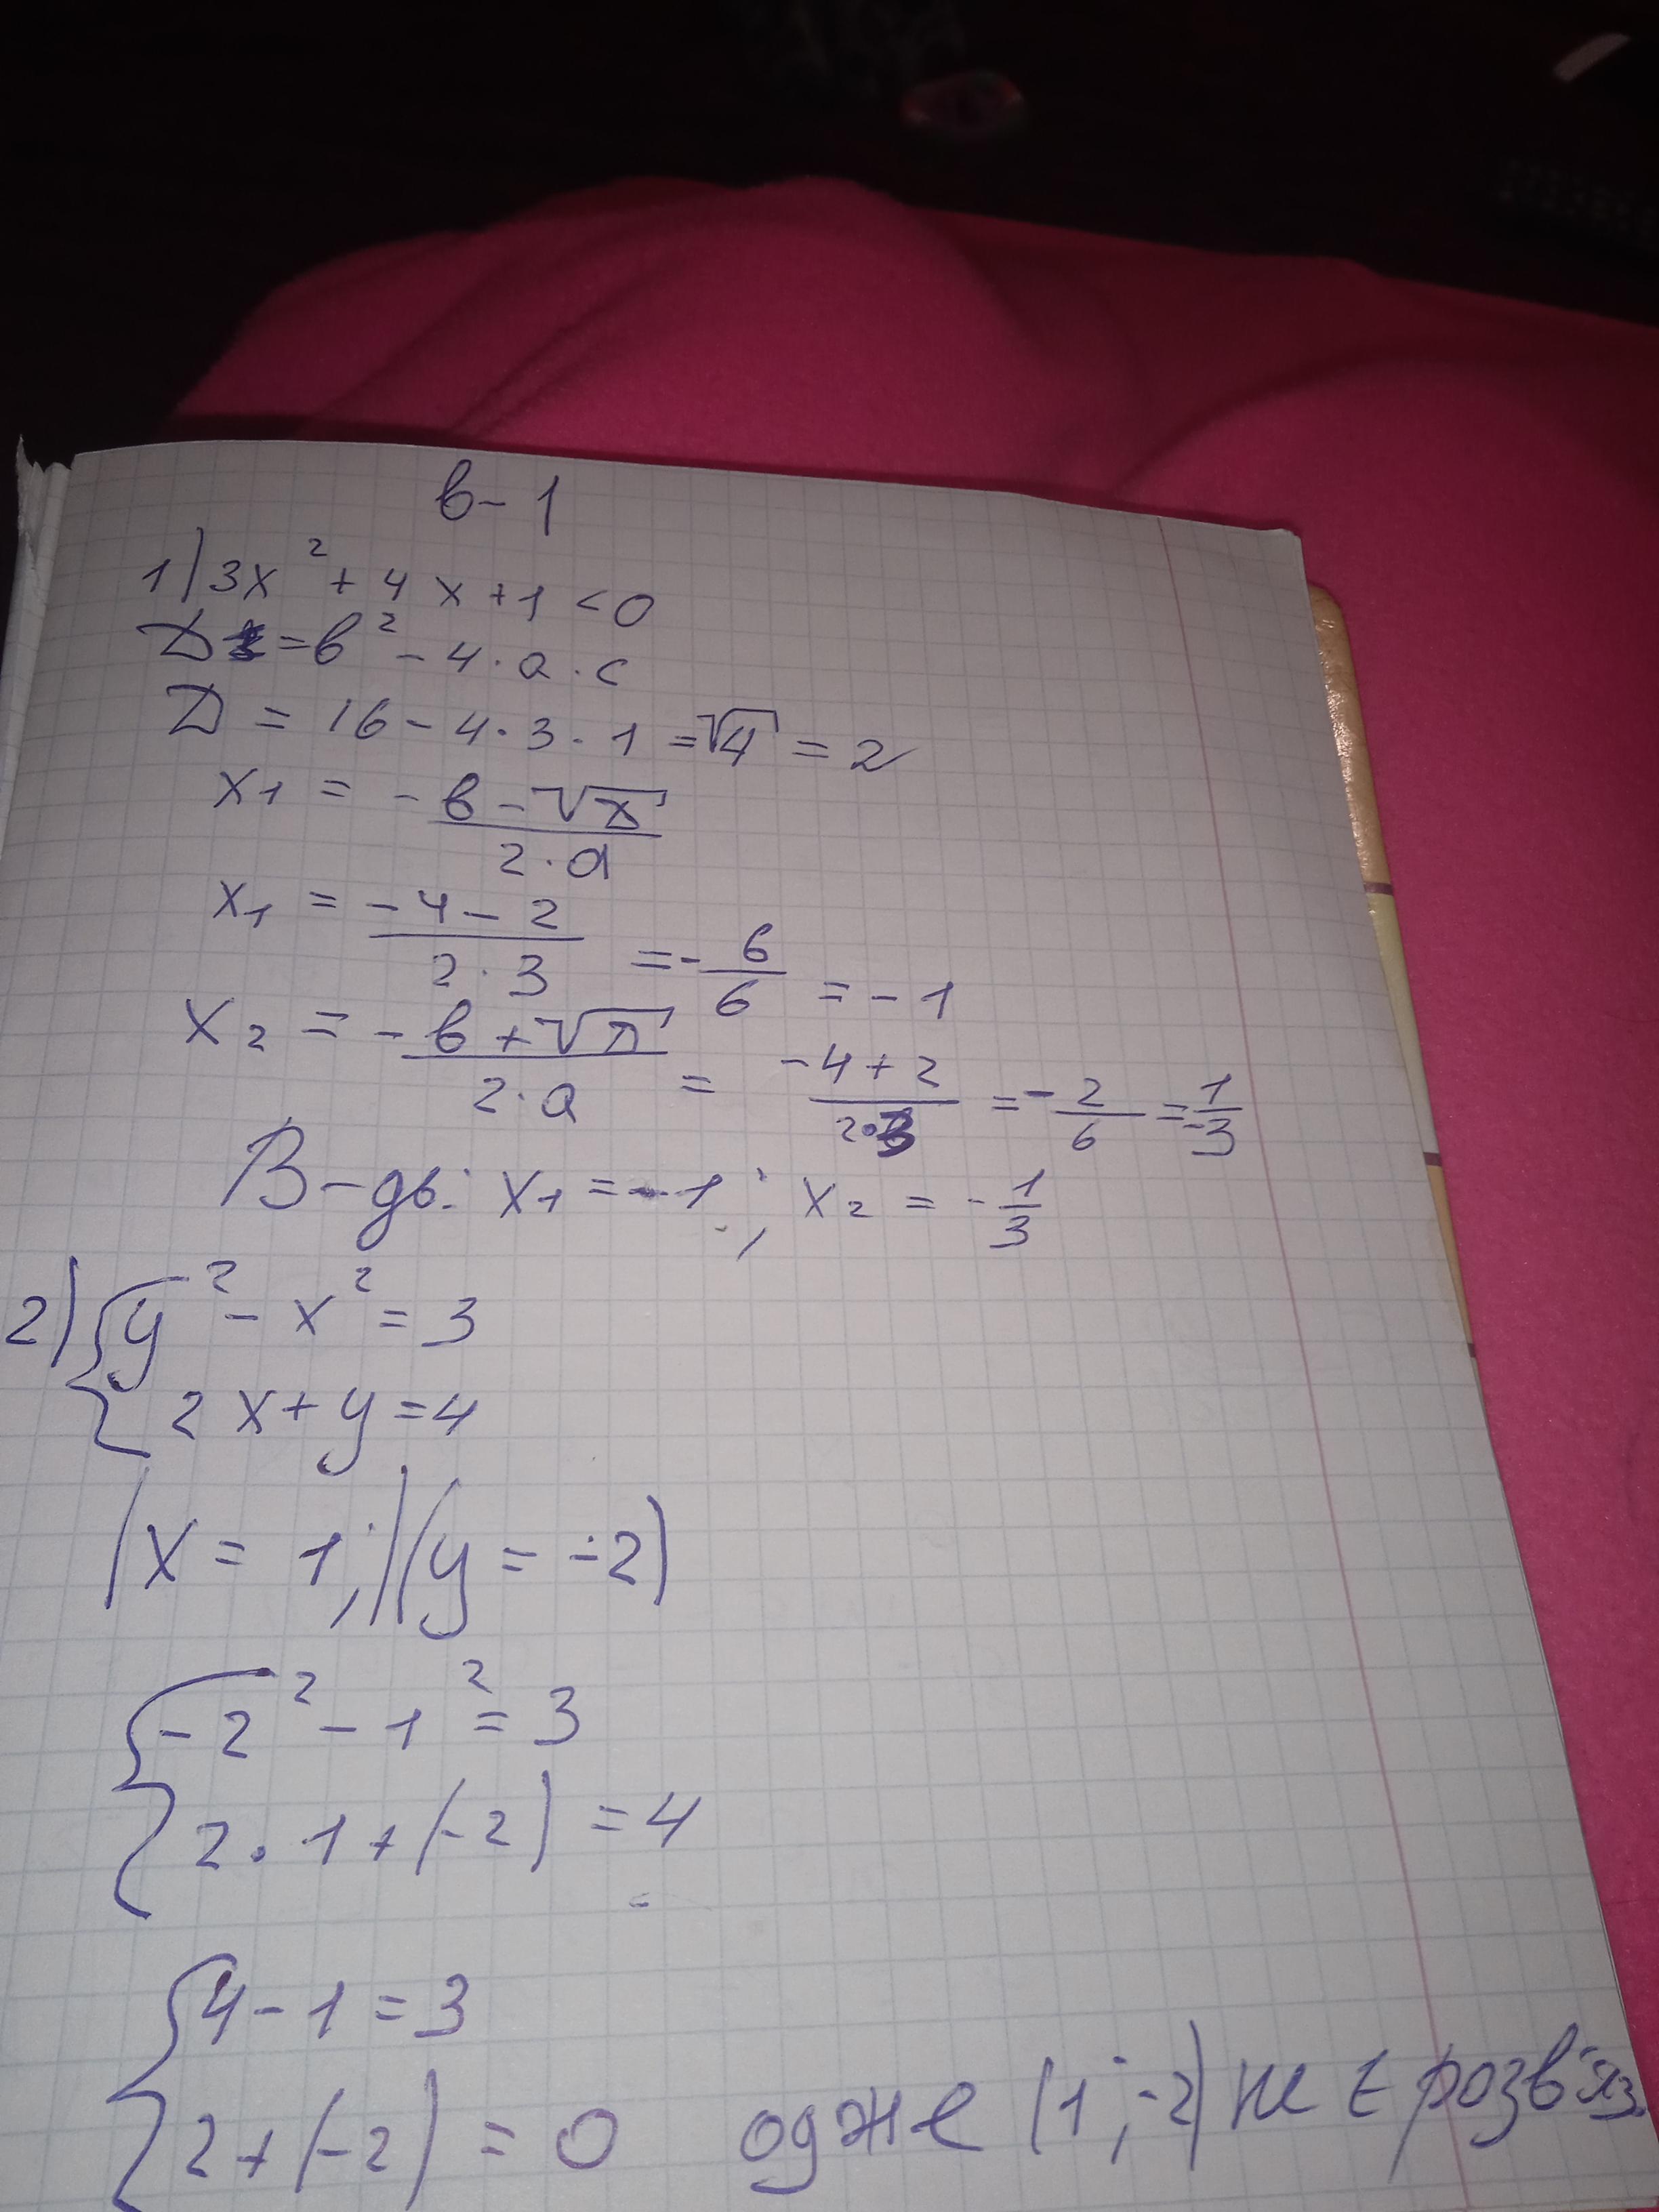 в-1
1) 3x² + 4x + 1 < 0
D = в² - 4·a·c
D = 16 - 4·3·1 = √4 = 2
x₁ = -в-√D / 2·a
x₁ = -4-2 / 2·3 = -6/6 = -1
x₂ = -в+√D / 2·a = -4+2 / 2·3 = -2/6 = -1/3
В-дь: x₁ = -1; x₂ = -1/3
2) { y² - x² = 3
2x + y = 4
(x = 1;) (y = -2)
{ -2² - 1² = 3
2·1 + (-2) = 4
{ 4 - 1 = 3
2 + (-2) = 0 одже (1; -2) не є розв'яз.